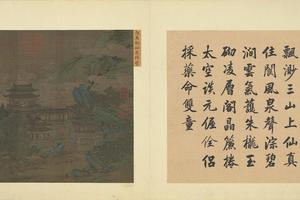 飄渺三山上仙真
住閬風泉聲淙碧
澗雲氣護朱櫳玉
砌凌層閣晶簾捲
太空談元偓佺侶
採藥命雙童